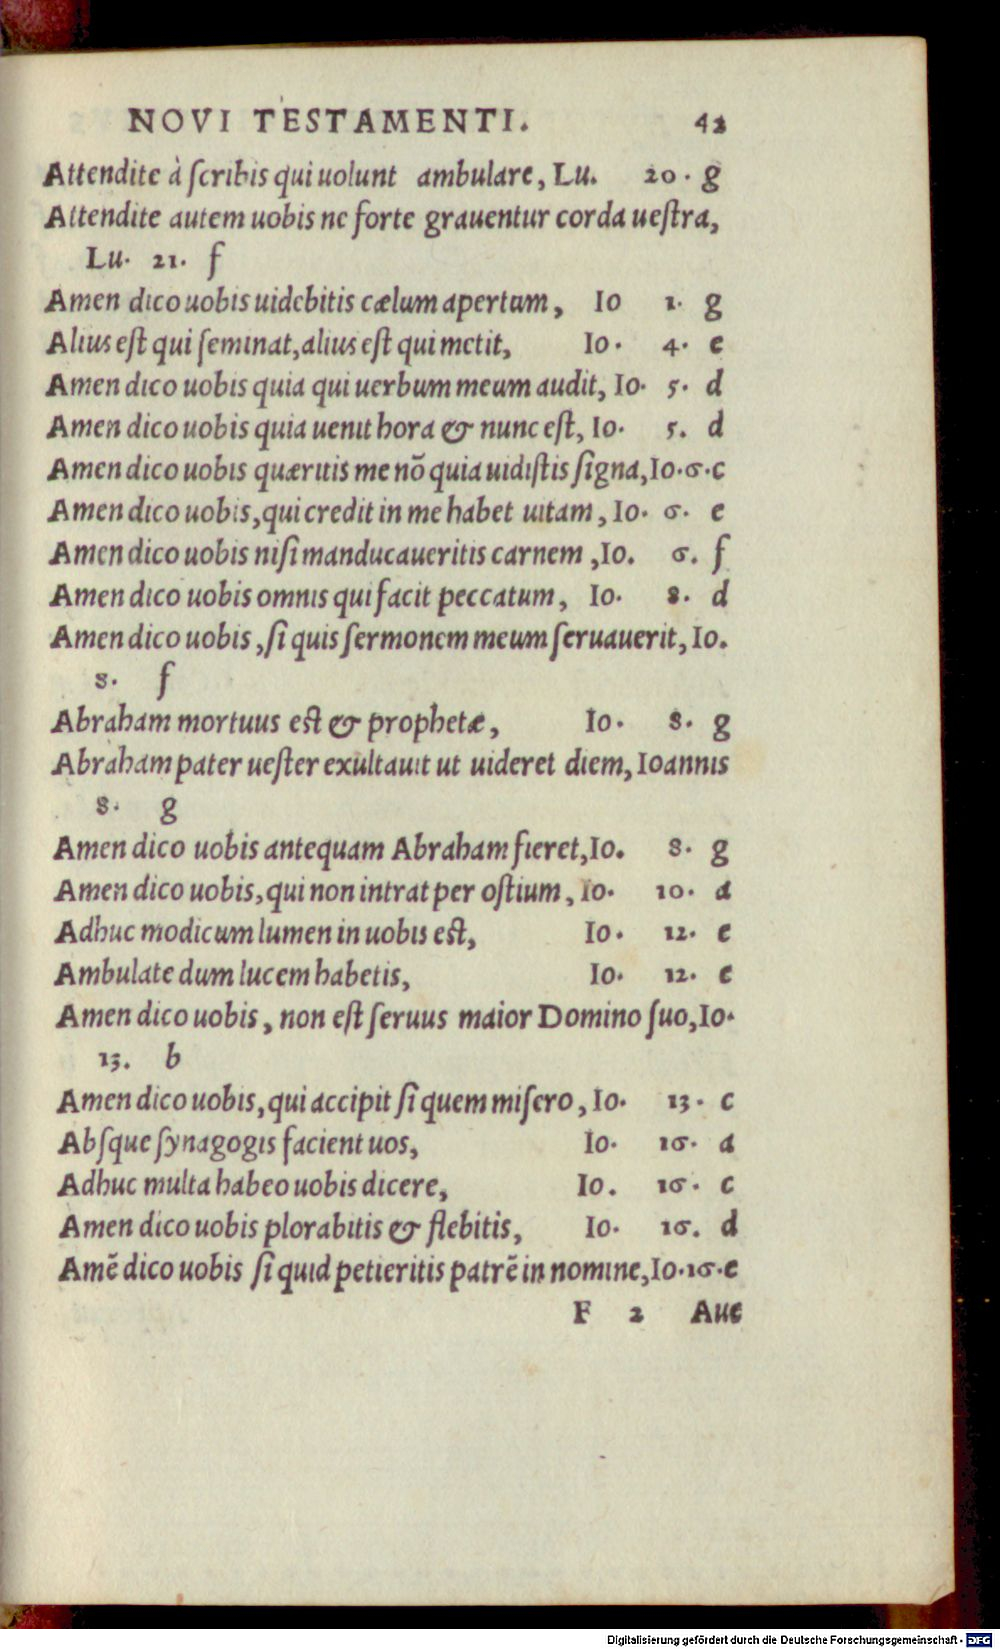 NOVI TESTAMENTI. 42
Attendite à ſcribis qui uolunt ambulare, Lu. 20. g
Attendite autem uobis ne forte grauentur corda ueſtra,
Lu. 21. f
Amen dico uobis uidebitis cælum apertum, Io 1. g
Alius eſt qui ſeminat, alius eſt qui metit, Io. 4. e
Amen dico uobis quia qui uerbum meum audit, Io. 5. d
Amen dico uobis quia uenit hora & nunc eſt, Io. 5. d
Amen dico uobis quæritis me nõ quia uidiſtis ſigna, Io. 6. c
Amen dico uobis, qui credit in me habet uitam, Io. 6. e
Amen dico uobis niſi manducaueritis carnem, Io. 6. f
Amen dico uobis omnis qui facit peccatum, Io. 8. d
Amen dico uobis, ſi quis ſermonem meum ſeruauerit, Io.
8. f
Abraham mortuus eſt & prophetæ, Io. 8. g
Abraham pater ueſter exultauit ut uideret diem, Ioannis
8. g
Amen dico uobis antequam Abraham fieret, Io. 8. g
Amen dico uobis, qui non intrat per oſtium, Io. 10. a
Adhuc modicum lumen in uobis eſt, Io. 12. e
Ambulate dum lucem habetis, Io. 12. e
Amen dico uobis, non eſt ſeruus maior Domino ſuo, Io.
13. b
Amen dico uobis, qui accipit ſi quem miſero, Io. 13. c
Abſque ſynagogis facient uos, Io. 16. a
Adhuc multa habeo uobis dicere, Io. 16. c
Amen dico uobis plorabitis & flebitis, Io. 16. d
Amẽ dico uobis ſi quid petieritis patrẽ in nomine, Io. 16. e
F 2 Aue
Digitalisierung gefördert durch die Deutsche Forschungsgemeinschaft - DFG